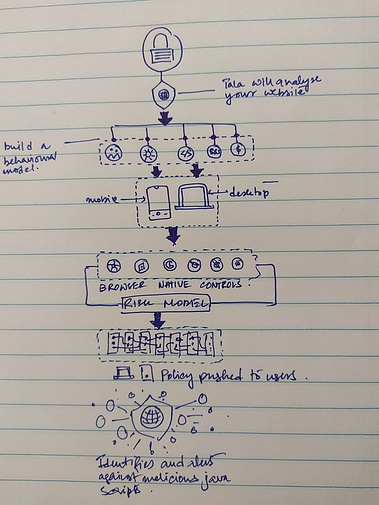 Tala will analyse
your website
build a
behavioural
model.
</>
mobile
desktop
BROWSER NATIVE CONTROLS.
RISK MODEL
Policy pushed to users.
Identifies and alert
against malicious java
scripts.